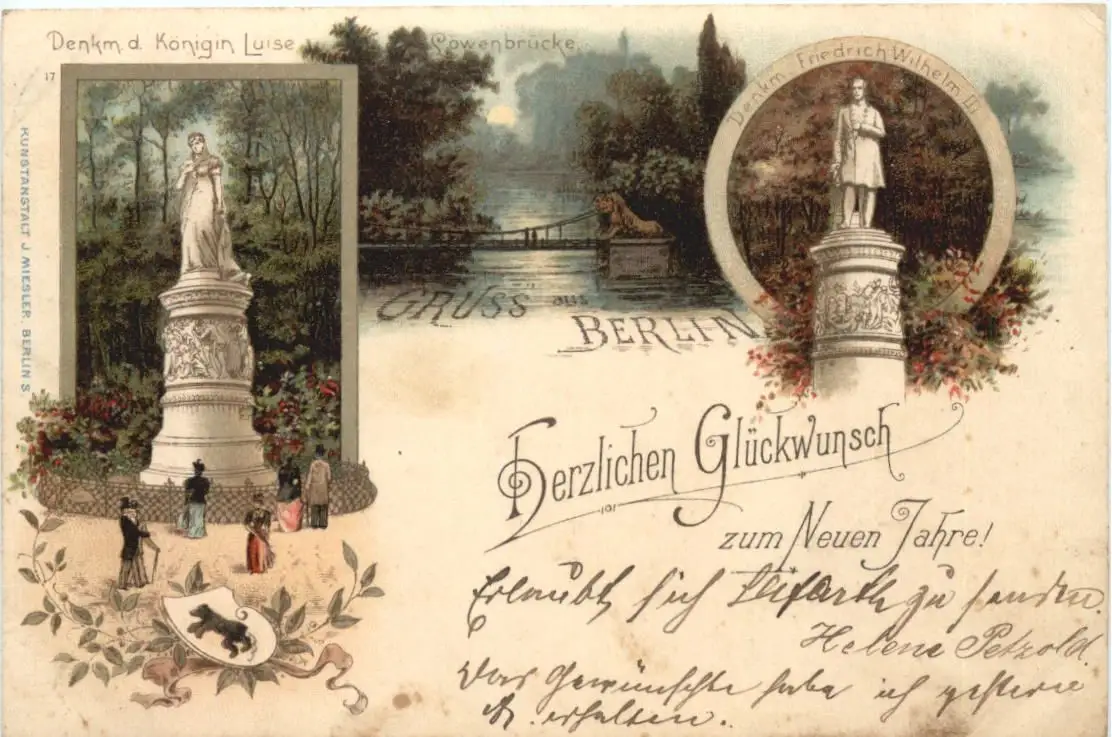 Denkm. d. Königin Luise
Löwenbrücke.
Denkm. Friedrich Wilhelm III
17
KUNSTANSTALT J. MIESLER. BERLIN S.
GRUSS aus
BERLIN
Herzlichen Glückwunsch
zum Neuen Jahre!
Erlaubt sich zu senden.
Helene Petzold.
Das Gewünschte habe ich gestern
erhalten.